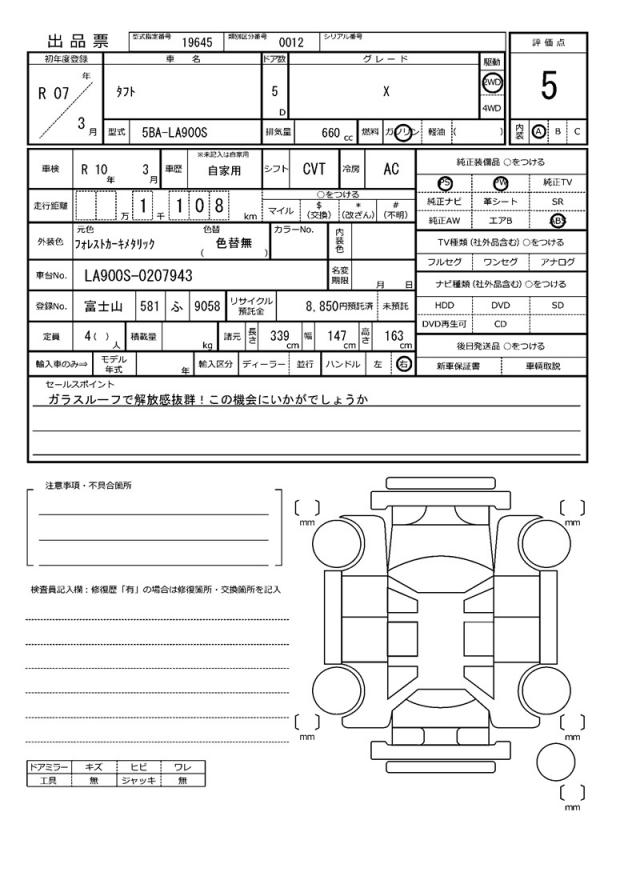 出品票 型式指定番号 19645 類別区分番号 0012 シリアル番号
初年度登録 車名 ドア数 グレード 駆動 評価点
R 07 年 3 月 タフト 5 D X 2WD 4WD 5
型式 5BA-LA900S 排気量 660 cc 燃料 ガソリン 軽油 ( ) 内装 A B C
車検 R 10 年 3 月 車歴 ※未記入は自家用 自家用 シフト CVT 冷房 AC
走行距離 万 1 千 1 0 8 km ○をつける
マイル $ (交換) * (改ざん) # (不明)
外装色 元色 フォレストカーキメタリック 色替 ( 色替無 ) カラーNo. 内装色
車台No. LA900S-0207943 名変期限 月 日
登録No. 富士山 581 ふ 9058 リサイクル預託金 8,850円預託済 未預託
定員 4 ( ) 人 積載量 kg 諸元 長さ 339 cm 幅 147 cm 高さ 163 cm
輸入車のみ⇒ モデル年式 年 輸入区分 ディーラー 並行 ハンドル 左 右
純正装備品 ○をつける
PS PW 純正TV
純正ナビ 革シート SR
純正AW エアB ABS
TV種類 (社外品含む) ○をつける
フルセグ ワンセグ アナログ
ナビ種類 (社外品含む) ○をつける
HDD DVD SD
DVD再生可 CD
後日発送品 ○をつける
新車保証書 車輌取説
セールスポイント
ガラスルーフで解放感抜群！この機会にいかがでしょうか
注意事項・不具合箇所
検査員記入欄：修復歴「有」の場合は修復箇所・交換箇所を記入
mm mm
mm mm
mm
ドアミラー キズ ヒビ ワレ
工具 無 ジャッキ 無